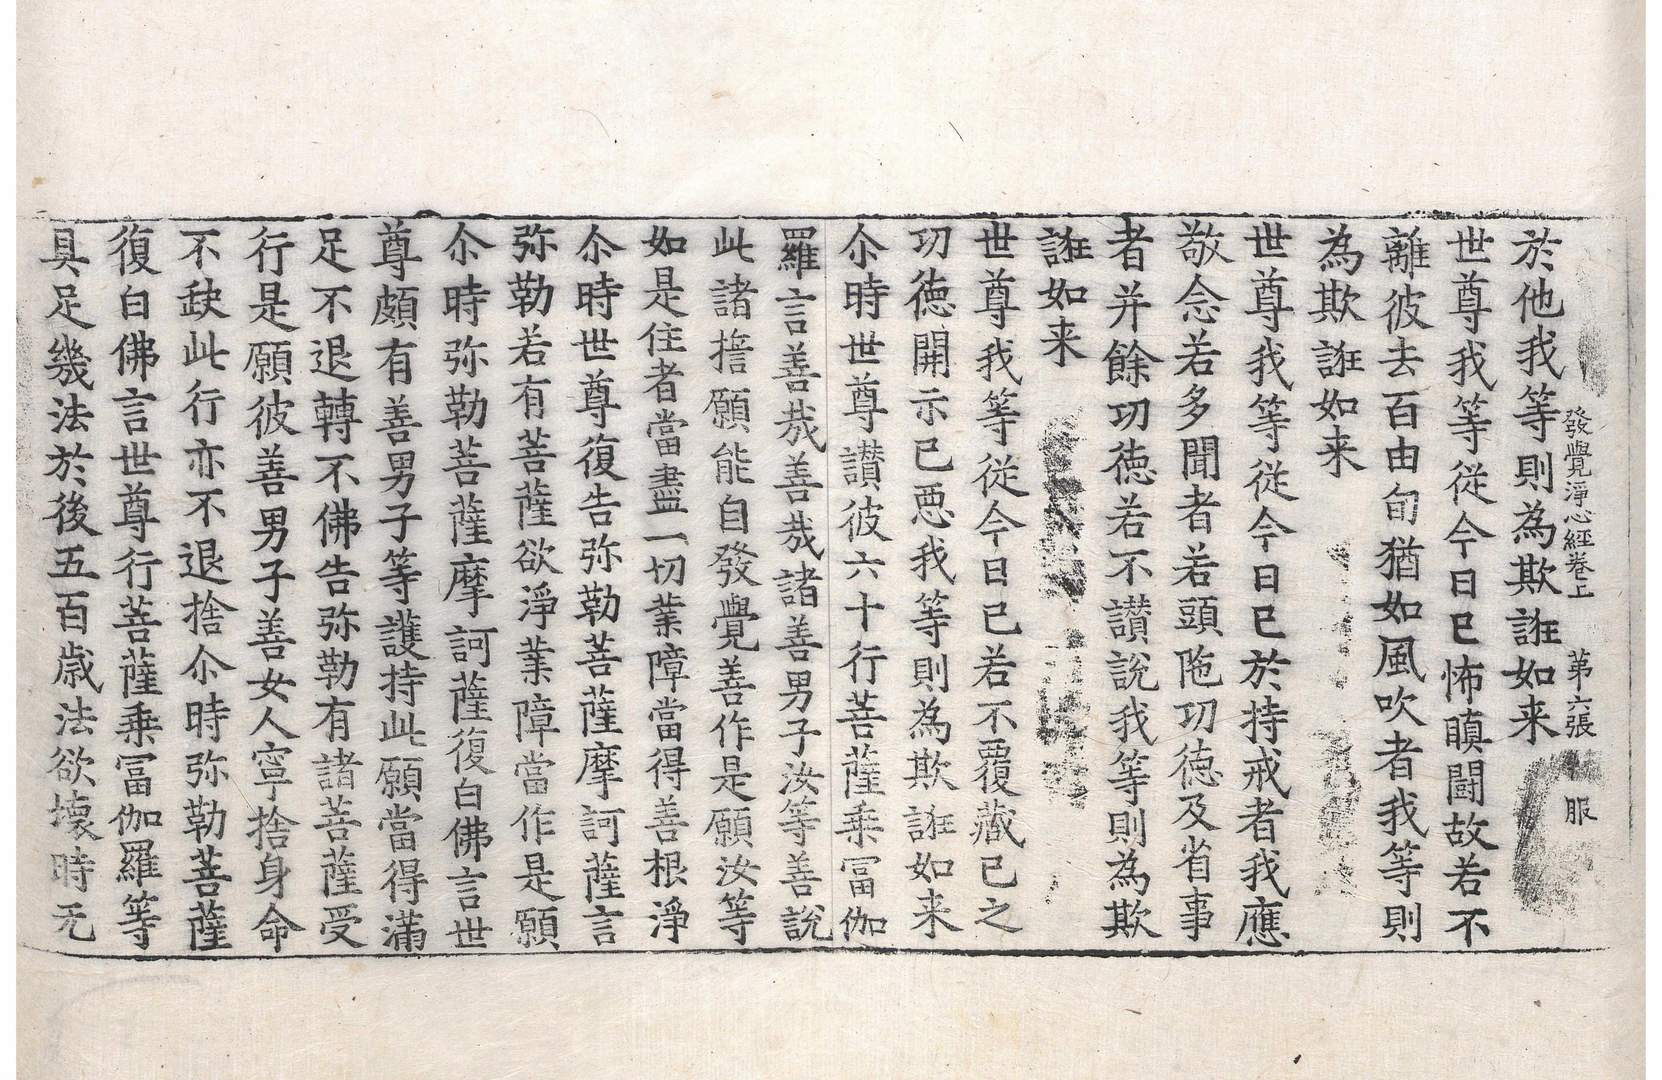 發覺淨心經卷上 第六張 服
於他我等則為欺誑如来
世尊我等従今日已怖瞋闘故若不
離彼去百由旬猶如風吹者我等則
為欺誑如来
世尊我等従今日已於持戒者我應
敬念若多聞者若頭陁功徳及省事
者并餘功徳若不讃說我等則為欺
誑如来
世尊我等従今日已若不覆藏已之
功徳開示已惡我等則為欺誑如来
尒時世尊讃彼六十行菩薩乗冨伽
羅言善哉善哉諸善男子汝等善說
此諸擔願能自發覺善作是願汝等
如是住者當盡一切業障當得善根淨
尒時世尊復告弥勒菩薩摩訶薩言
弥勒若有菩薩欲淨業障當作是願
尒時弥勒菩薩摩訶薩復白佛言世
尊頗有善男子等護持此願當得滿
足不退轉不佛告弥勒有諸菩薩受
行是願彼善男子善女人寧捨身命
不缺此行亦不退捨尒時弥勒菩薩
復白佛言世尊行菩薩乗冨伽羅等
具足幾法於後五百歲法欲壞時无